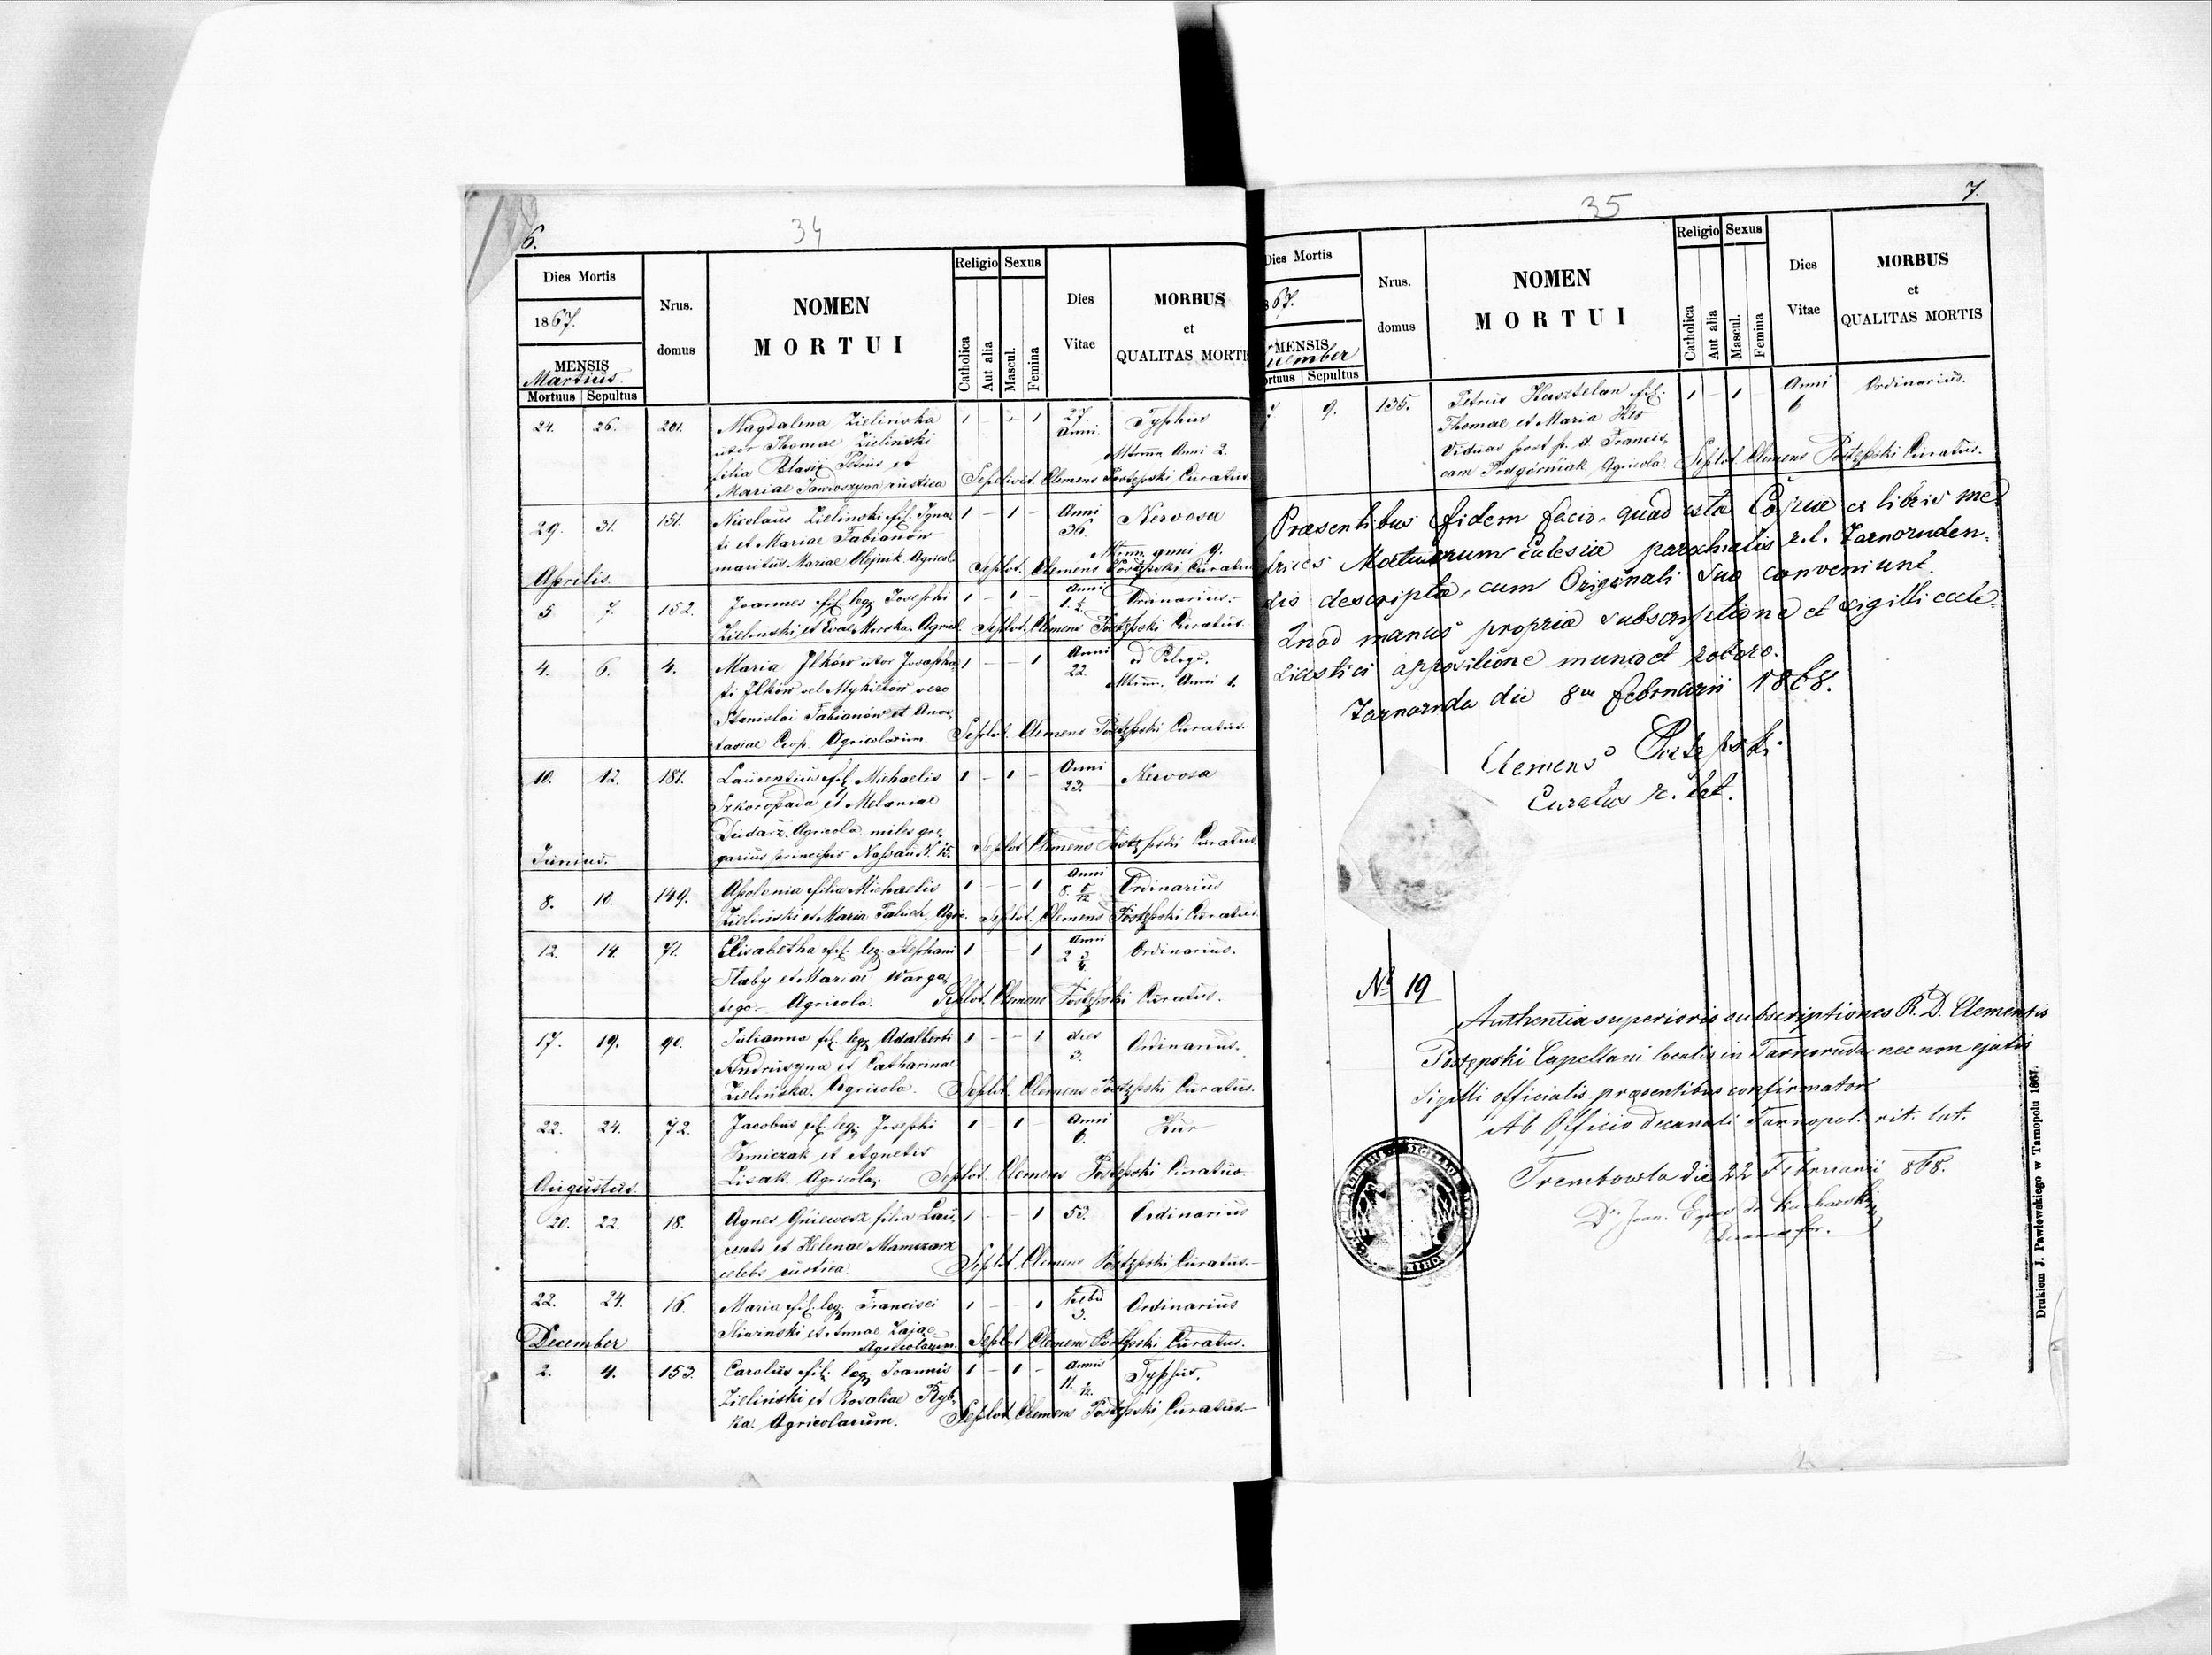 6.
34
Dies Mortis
1867.
MENSIS
Martius
Mortuus Sepultus
Nrus. domus
NOMEN
MORTUI
Religio
Catholica
Aut alia
Sexus
Mascul.
Femina
Dies Vitae
MORBUS
et
QUALITAS MORTI
24. 26. 201. Magdalena Zielinska 1 - - 1 27. Typhus
uxor Thomae Zielinski Anni
filia Blasii Petrus et Anni 2.
Mariae Jawoszyna rustica Sepelivit Clemens Postępski Curatus
29. 31. 151. Nicolaus Zielinski fil. Igna 1 - 1 - Anni Nervosa
ti et Mariae Fabianów 36.
maritus Mariae Olejnik Agricol anni 9.
Seplvt. Clemens Postępski Curatus
Aprilis
5 7. 152. Joannes fil. leg. Josephi 1 - 1 - Anni Ordinarius.
Zielinski et Evae Agricol. Seplvt. Clemens Postępski Curatus.
4. 6. 4. Maria Ilków uxor Josapha 1 - - 1 Anni
ti Ilków vel Mykietów vero 22. Anni 1.
Stanislai Fabianów et Anas,
tasiae Agricolarum. Seplvt. Clemens Postępski Curatus.
10. 12. 181. Laurentius fil. Michaelis 1 - 1 - Anni Nervosa
Szkoropada et Melaniae 23.
Dudarz. Agricola miles gre,
garius principis Nassau N. 15. Seplvt Clemens Postępski Curatus.
Junius.
8. 10. 149. Apolonia filia Michaelis 1 - - 1 Anni Ordinarius
Zielinski et Maria Agric. 8. 5/12 Seplvt. Clemens Postępski Curatus.
12. 14. 71. Elisabetha fil. leg. Stephani 1 - - 1 Anni Ordinarius.
Słaby et Mariae Warga, 2 3/4
tego - Agricola. Seplvt. Clemens Postępski Curatus.
17. 19. 90. Julianna fil. leg. Adalberti 1 - - 1 dies Ordinarius.
Andrusyna et Catharinae 3.
Zielinska. Agricola. Seplvt. Clemens Postępski Curatus.
22. 24. 72. Jacobus fil. leg. Josephi 1 - 1 - Anni Kur
et Agnetis 6.
Lisak. Agricola. Seplvt. Clemens Postępski Curatus
Augustus
20. 22. 18. Agnes Gniewosz filia Lau, 1 - - 1 53. Ordinarius
renti et Helenae Mamczarz
celebs rustica. Seplvt. Clemens Postępski Curatus.
22. 24. 16. Maria fil. leg. Francisci 1 - - 1 hebd Ordinarius
Sliwinski et Annae Zając 3.
Agricolarum. Seplvt Clemens Postępski Curatus.
December
2. 4. 153. Carolus fil. leg. Joannis 1 - 1 - Annis Typhus.
Zielinski et Rosaliae Ryb, 11.
ka. Agricolarum. Seplvt Clemens Postępski Curatus.
35
7.
Dies Mortis
67.
MENSIS
cember
ortuus Sepultus
Nrus. domus
NOMEN
MORTUI
Religio
Catholica
Aut alia
Sexus
Mascul.
Femina
Dies Vitae
MORBUS
et
QUALITAS MORTIS
7 9. 135. Petrus Kasztelan fil. 1 - 1 - Anni Ordinarius.
Thomae et Maria 6
Viduas post p. d. Francis,
cam Podgórniak Agricola Seplvt Clemens Postępski Curatus.
Præsentibus fidem facio, quod ista Copia ex libris me
trices Mortuorum Eclesiæ parochialis r. l. Tarnoruden-
sis descripta, cum Originali suo conveniunt.
Quod manus propria subscriptione et sigilli eccle-
siastici appositione munio et roboro.
Tarnoruda die 8va februarii 1868.
Clemens Postępski
Curatus r. lat.
No 19
Authentia superioris subscriptiones R. D. Clementis
Postępski Capellani localis in Tarnoruda nec non ejus
Sigilli officialis præsentibus confirmator
Ab Officio Decanali Tarnopol. rit. lat.
Trembowla die 22 Februarii 868.
Drukiem J. Pawłowskiego w Tarnopolu 1867.